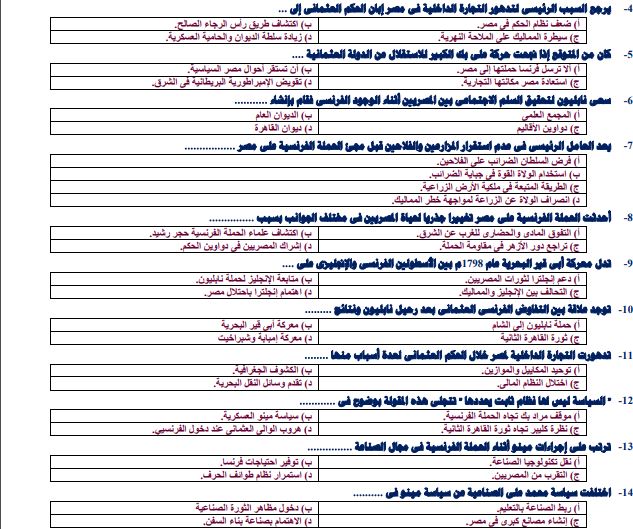 4- يرجع السبب الرئيسى لتدهور التجارة الداخلية فى مصر إبان الحكم العثمانى إلى ...
أ) ضعف نظام الحكم في مصر. ب) اكتشاف طريق رأس الرجاء الصالح.
ج) سيطرة المماليك على الملاحة النهرية. د) زيادة سلطة الديوان والحامية العسكرية.
5- كان من المتوقع إذا نجحت حركة على بك الكبير للاستقلال عن الدولة العثمانية ....
أ) ألا ترسل فرنسا حملتها إلى مصر. ب) أن تستقر أحوال مصر السياسية.
ج) استعادة مصر مكانتها التجارية. د) تقويض الإمبراطورية البريطانية في الشرق.
6- سعى نابليون لتحقيق السلم الاجتماعى بين المصريين أثناء الوجود الفرنسى فقام بإنشاء ...........
أ) المجمع العلمي ب) الديوان العام
ج) دواوين الأقاليم د) ديوان القاهرة
7- يعد العامل الرئيسى فى عدم استقرار المزارعين والفلاحين قبل مجئ الحملة الفرنسية على مصر .................
أ) فرض السلطان الضرائب على الفلاحين.
ب) استخدام الولاة القوة في جباية الضرائب.
ج) الطريقة المتبعة في ملكية الأرض الزراعية.
د) انصراف الولاة عن الزراعة لمواجهة خطر المماليك.
8- أحدثت الحملة الفرنسية على مصر تغييرا جذريا لحياة المصريين فى مختلف الجوانب بسبب ...............
أ) التفوق المادى والحضارى للغرب عن الشرق. ب) اكتشاف علماء الحملة الفرنسية حجر رشيد.
ج) تراجع دور الأزهر في مقاومة الحملة. د) إشراك المصريين في دواوين الحكم.
9- تدل معركة أبى قير البحرية عام 1798م بين الأسطولين الفرنسى والإنجليزى على ....
أ) دعم إنجلترا لثورات المصريين. ب) متابعة الإنجليز لحملة نابليون.
ج) التحالف بين الإنجليز والمماليك. د) اهتمام إنجلترا باحتلال مصر.
10- توجد علاقة بين التفاوض الفرنسى العثمانى بعد رحيل نابليون ونتائج .........
أ) حملة نابليون إلى الشام ب) معركة أبي قير البحرية
ج) ثورة القاهرة الثانية د) معركة إمبابة وشبراخيت
11- تدهورت التجارة الداخلية لمصر خلال الحكم العثمانى لعدة أسباب منها ........
أ) توحيد المكاييل والموازين. ب) الكشوف الجغرافية.
ج) اختلال النظام المالى. د) تقدم وسائل النقل البحرية.
12- " السياسة ليس لها نظام ثابت يحددها " تتجلى هذه المقولة بوضوح فى ............
أ) موقف مراد بك تجاه الحملة الفرنسية. ب) سياسة مينو العسكرية.
ج) نظرة كليبر تجاه ثورة القاهرة الثانية. د) هروب الوالى العثمانى عند دخول الفرنسيين.
13- ترتب على إجراءات مينو أثناء الحملة الفرنسية فى مجال الصناعة ............
أ) نقل تكنولوجيا الصناعة. ب) توفير احتياجات فرنسا.
ج) التقرب من المصريين. د) استمرار نظام طوائف الحرف.
14- اختلفت سياسة محمد على الصناعية عن سياسة مينو فى ..........
أ) ربط الصناعة بالتعليم. ب) دخول مظاهر الثورة الصناعية
ج) إنشاء مصانع كبرى في مصر. د) الاهتمام بصناعة بناء السفن.